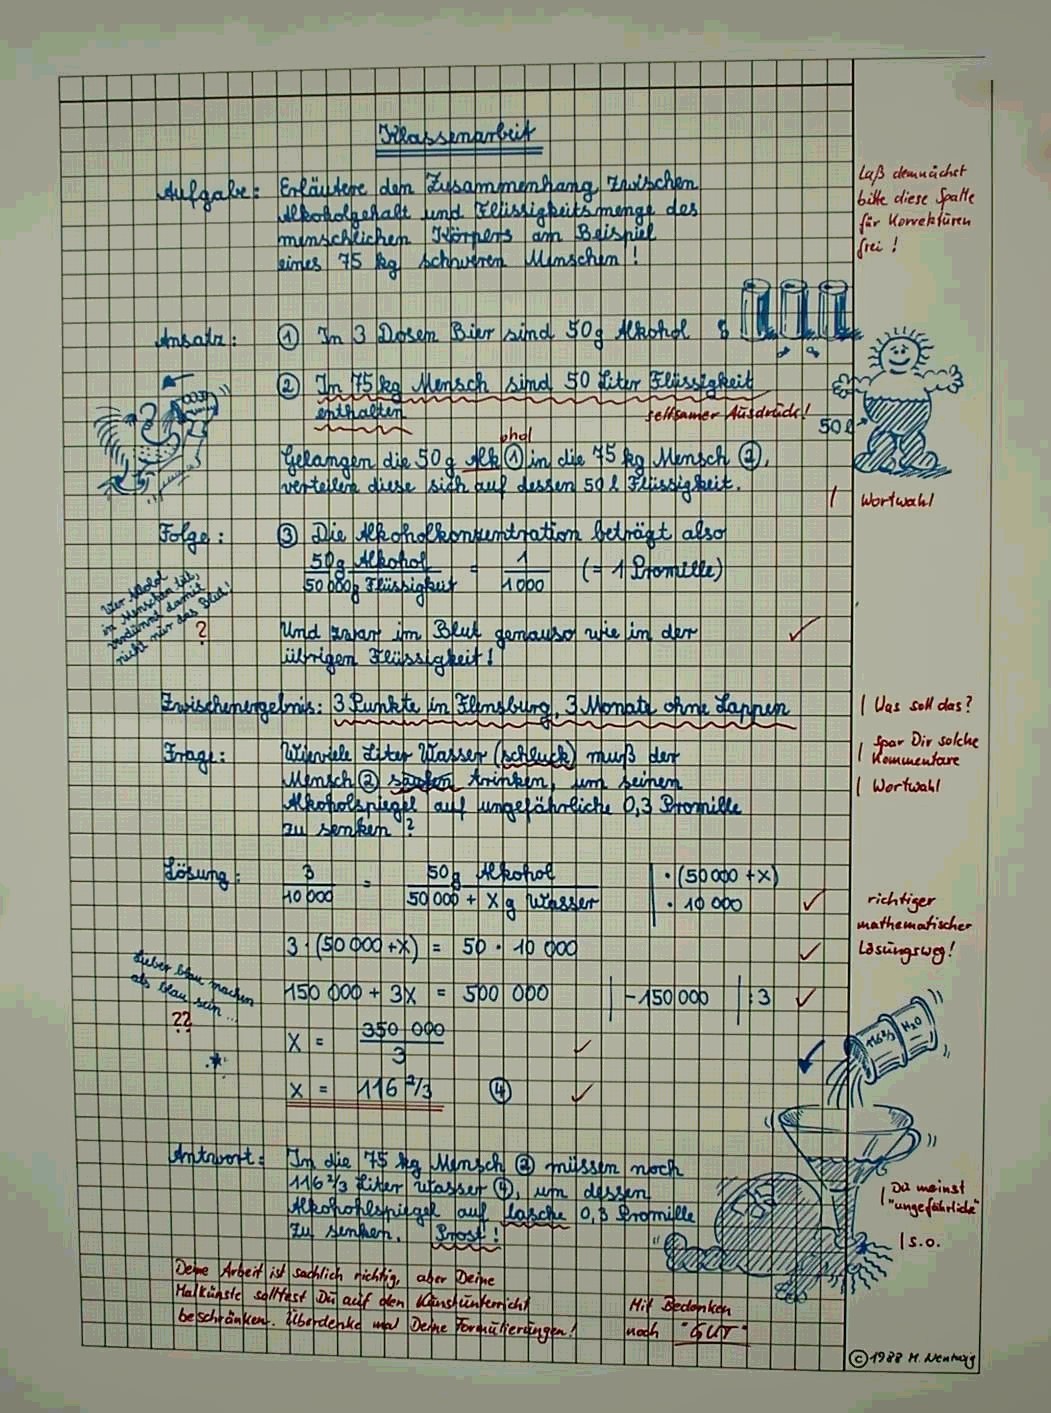 Klassenarbeit
Aufgabe: Erläutere den Zusammenhang zwischen
Alkoholgehalt und Flüssigkeitsmenge des
menschlichen Körpers am Beispiel
eines 75 kg schweren Menschen!
Laß demnächst
bitte diese Spalte
für Korrektüren
frei!
Ansatz: ① In 3 Dosen Bier sind 50g Alkohol
② In 75 kg Mensch sind 50 Liter Flüssigkeit
enthalten
seltsamer Ausdruck!
50 l
ohol
Gelangen die 50g Alk ① in die 75 kg Mensch ②,
verteilen diese sich auf dessen 50 l Flüssigkeit.
| Wortwahl
Folge: ③ Die Alkoholkonzentration beträgt also
50g Alkohol / 50 000g Flüssigkeit = 1 / 1000 (= 1 Promille)
Wer Alkohol
in Menschen
verdünnt damit
nicht nur das Blut!
?
Und zwar im Blut genauso wie in der ✓
übrigen Flüssigkeit!
Zwischenergebnis: 3 Punkte in Flensburg, 3 Monate ohne Lappen
| Was soll das?
Frage: Wieviele Liter Wasser (schluck) muß der
Mensch ② saufen trinken, um seinen
Alkoholspiegel auf ungefährliche 0,3 Promille
zu senken?
| Spar Dir solche
Kommentare
| Wortwahl
Lösung: 3 / 10 000 = 50g Alkohol / 50 000 + X g Wasser | · (50 000 + X) | · 10 000 ✓
3 · (50 000 + X) = 50 · 10 000 ✓
150 000 + 3X = 500 000 | - 150 000 | : 3 ✓
X = 350 000 / 3 ✓
X = 116 2/3 ④ ✓
richtiger
mathematischer
Lösungsweg!
Lieber blau machen
als blau sein...
??
116 2/3 H2O
Antwort: In die 75 kg Mensch ② müssen noch
116 2/3 Liter Wasser ④, um dessen
Alkohohlspiegel auf lasche 0,3 Promille
zu senken. Prost!
| Du meinst
"ungefährliche"
| s.o.
Deine Arbeit ist sachlich richtig, aber Deine
Malkünste solltest Du auf den Kunstunterricht
beschränken. Überdenke mal Deine Formulierungen!
Mit Bedenken
noch "GUT"
© 1988 M. Nentwig